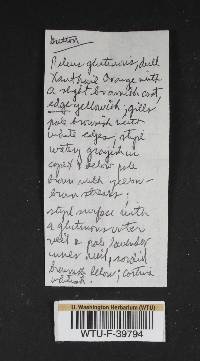 Button
Pileus glutinous, dull
Xanthine Orange with
a slight brownish cast,
edge yellowish, gills
pale brownish with
white edges, stipe
watery grayish in
apex & below pale
brown with yellow-
brown streaks;
stipe surface with
a glutinous outer
veil & pale lavender
inner veil, sordid
brownish below; cortina
whitish.
U. Washington Herbarium (WTU)
WTU-F-39794